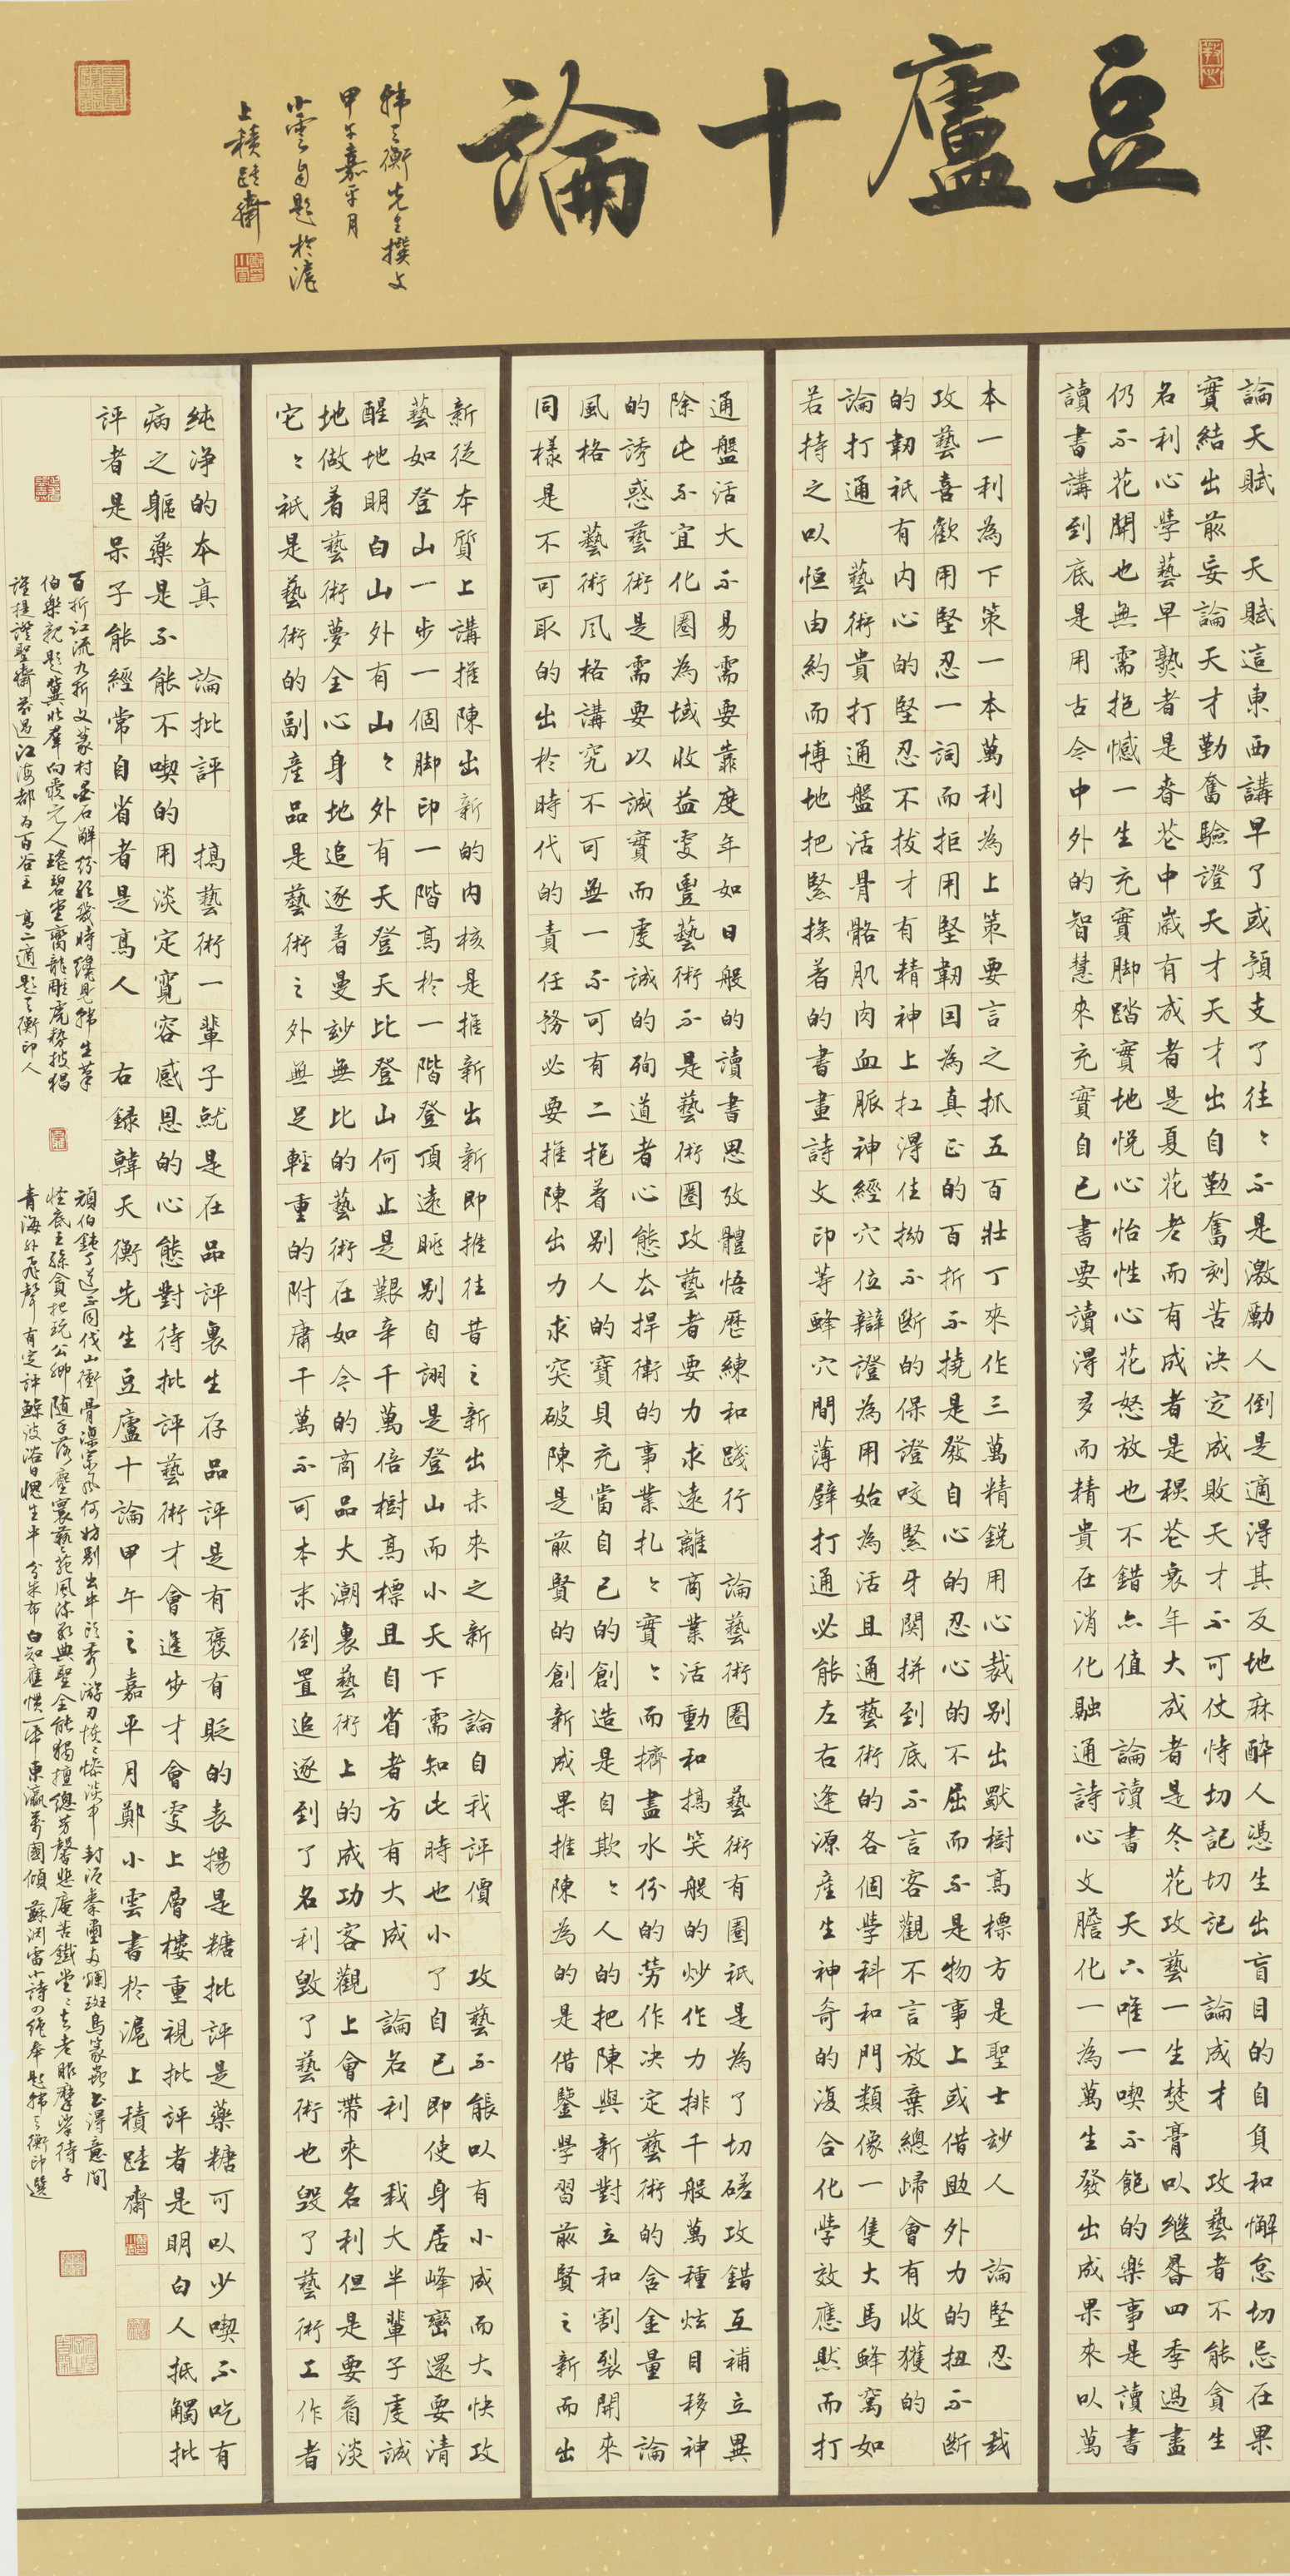 豆廬十論
韓天衡先生撰文
甲午嘉平月
小雲自題於滬
上積跬齋
論天賦　天賦這東西講早了或預支了往々不是激勵人倒是適得其反地麻醉人憑生出盲目的自負和懈怠切忌在果
實結出前妄論天才勤奮驗證天才天才出自勤奮刻苦決定成敗天才不可仗恃切記切記　論成才　攻藝者不能貪生
名利心學藝早熟者是春花中歲有成者是夏花老而有成者是稞花衰年大成者是冬花攻藝一生焚膏以繼晷四季過盡
仍不花開也無需抱憾一生充實腳踏實地悅心怡性心花怒放也不錯亦值　論讀書　天六唯一喫不飽的樂事是讀書
讀書講到底是用古今中外的智慧來充實自己書要讀得多而精貴在消化融通詩心文膽化一為萬生發出成果來以萬
本一利為下策一本萬利為上策要言之抓五百壯丁來作三萬精銳用心裁別出獸樹高標方是聖士妙人　論堅忍　我
攻藝喜歡用堅忍一詞而拒用堅韌因為真正的百折不撓是發自心的忍心的不屈而不是物事上或借助外力的扭不斷
的韌祇有內心的堅忍不拔才有精神上扛得住拗不斷的保證咬緊牙關拼到底不言客觀不言放棄總歸會有收獲的
論打通　藝術貴打通盤活骨骼肌肉血脈神經穴位辯證為用始為活且通藝術的各個學科和門類像一隻大馬蜂窩如
若持之以恒由約而博地把緊挨著的書畫詩文印等蜂穴間薄壁打通必能左右逢源產生神奇的復合化學效應然而打
通盤活大不易需要靠度年如日般的讀書思攷體悟歷練和踐行　論藝術圈　藝術有圈祇是為了切磋攻錯互補立異
除此不宜化圈為域收益受豐藝術不是藝術圈攻藝者要力求遠離商業活動和搞笑般的炒作力排千般萬種炫目移神
的誘惑藝術是需要以誠實而虔誠的殉道者心態去捍衛的事業扎々實々而擠盡水份的勞作決定藝術的含金量　論
風格　藝術風格講究不可無一不可有二抱着別人的寶貝充當自己的創造是自欺々人的把陳與新對立和割裂開來
同樣是不可取的出於時代的責任務必要推陳出力求突破陳是前賢的創新成果推陳為的是借鑒學習前賢之新而出
新從本質上講推陳出新的內核是推新出新即推往昔之新出未來之新　論自我評價　攻藝不能以有小成而大快攻
藝如登山一步一個腳印一階高於一階登頂遠眺別自詡是登山而小天下需知此時也小了自己即使身居峰巒還要清
醒地明白山外有山々外有天登天比登山何止是艱辛千萬倍樹高標且自省者方有大成　論名利　我大半輩子虔誠
地做着藝術夢全心身地追逐着曼妙無比的藝術在如今的商品大潮裏藝術上的成功客觀上會帶來名利但是要看淡
它々祇是藝術的副產品是藝術之外無足輕重的附庸千萬不可本末倒置追逐到了名利毀了藝術也毀了藝術工作者
純淨的本真　論批評　搞藝術一輩子就是在品評裏生存品評是有褒有貶的表揚是糖批評是藥糖可以少喫不吃有
病之軀藥是不能不喫的用淡定寬容感恩的心態對待批評藝術才會進步才會更上層樓重視批評者是明白人抵觸批
評者是呆子能經常自省者是高人　右錄韓天衡先生豆廬十論甲午之嘉平月鄭小雲書於滬上積跬齋